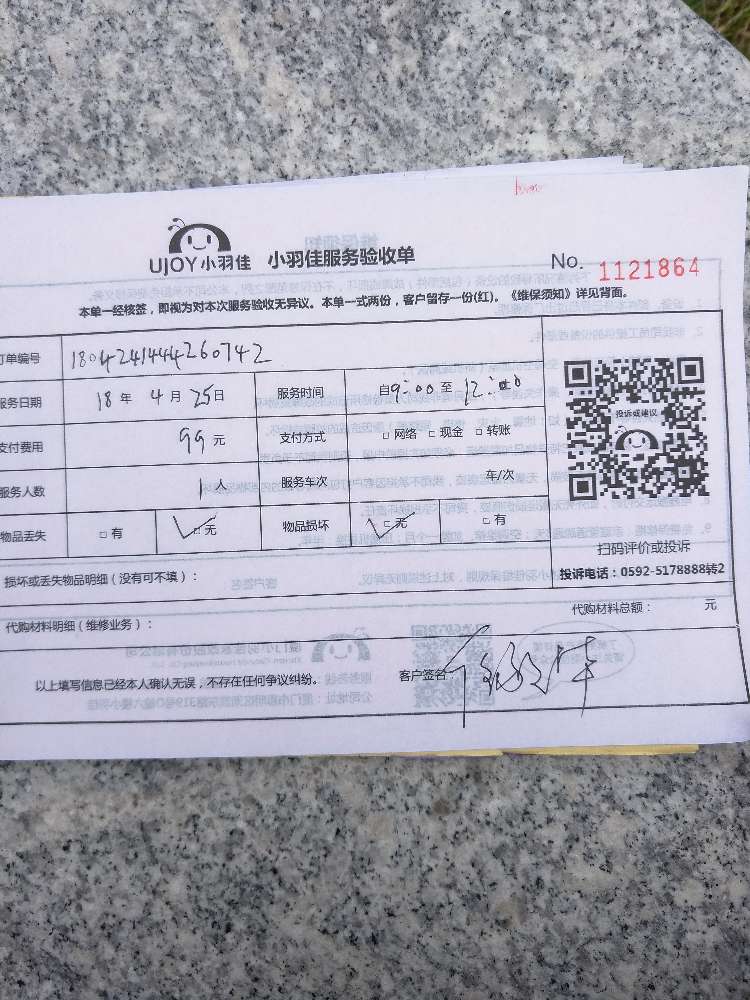 UJOY小羽佳 小羽佳服务验收单
No. 1121864
本单一经核签，即视为对本次服务验收无异议。本单一式两份，客户留存一份(红)。《维保须知》详见背面。
订单编号 1804241444260742
服务日期 18 年 4 月 25 日 服务时间 自 9:00 至 12:00
支付费用 99 元 支付方式 □ 网络 □ 现金 □ 转账
服务人数 1 人 服务车次 车/次
物品丢失 □ 有 □ 无 物品损坏 □ 无 □ 有
投诉或建议
扫码评价或投诉
投诉电话：0592-5178888转2
损坏或丢失物品明细（没有可不填）：
代购材料明细（维修业务）： 代购材料总额： 元
以上填写信息已经本人确认无误，不存在任何争议纠纷。 客户签名